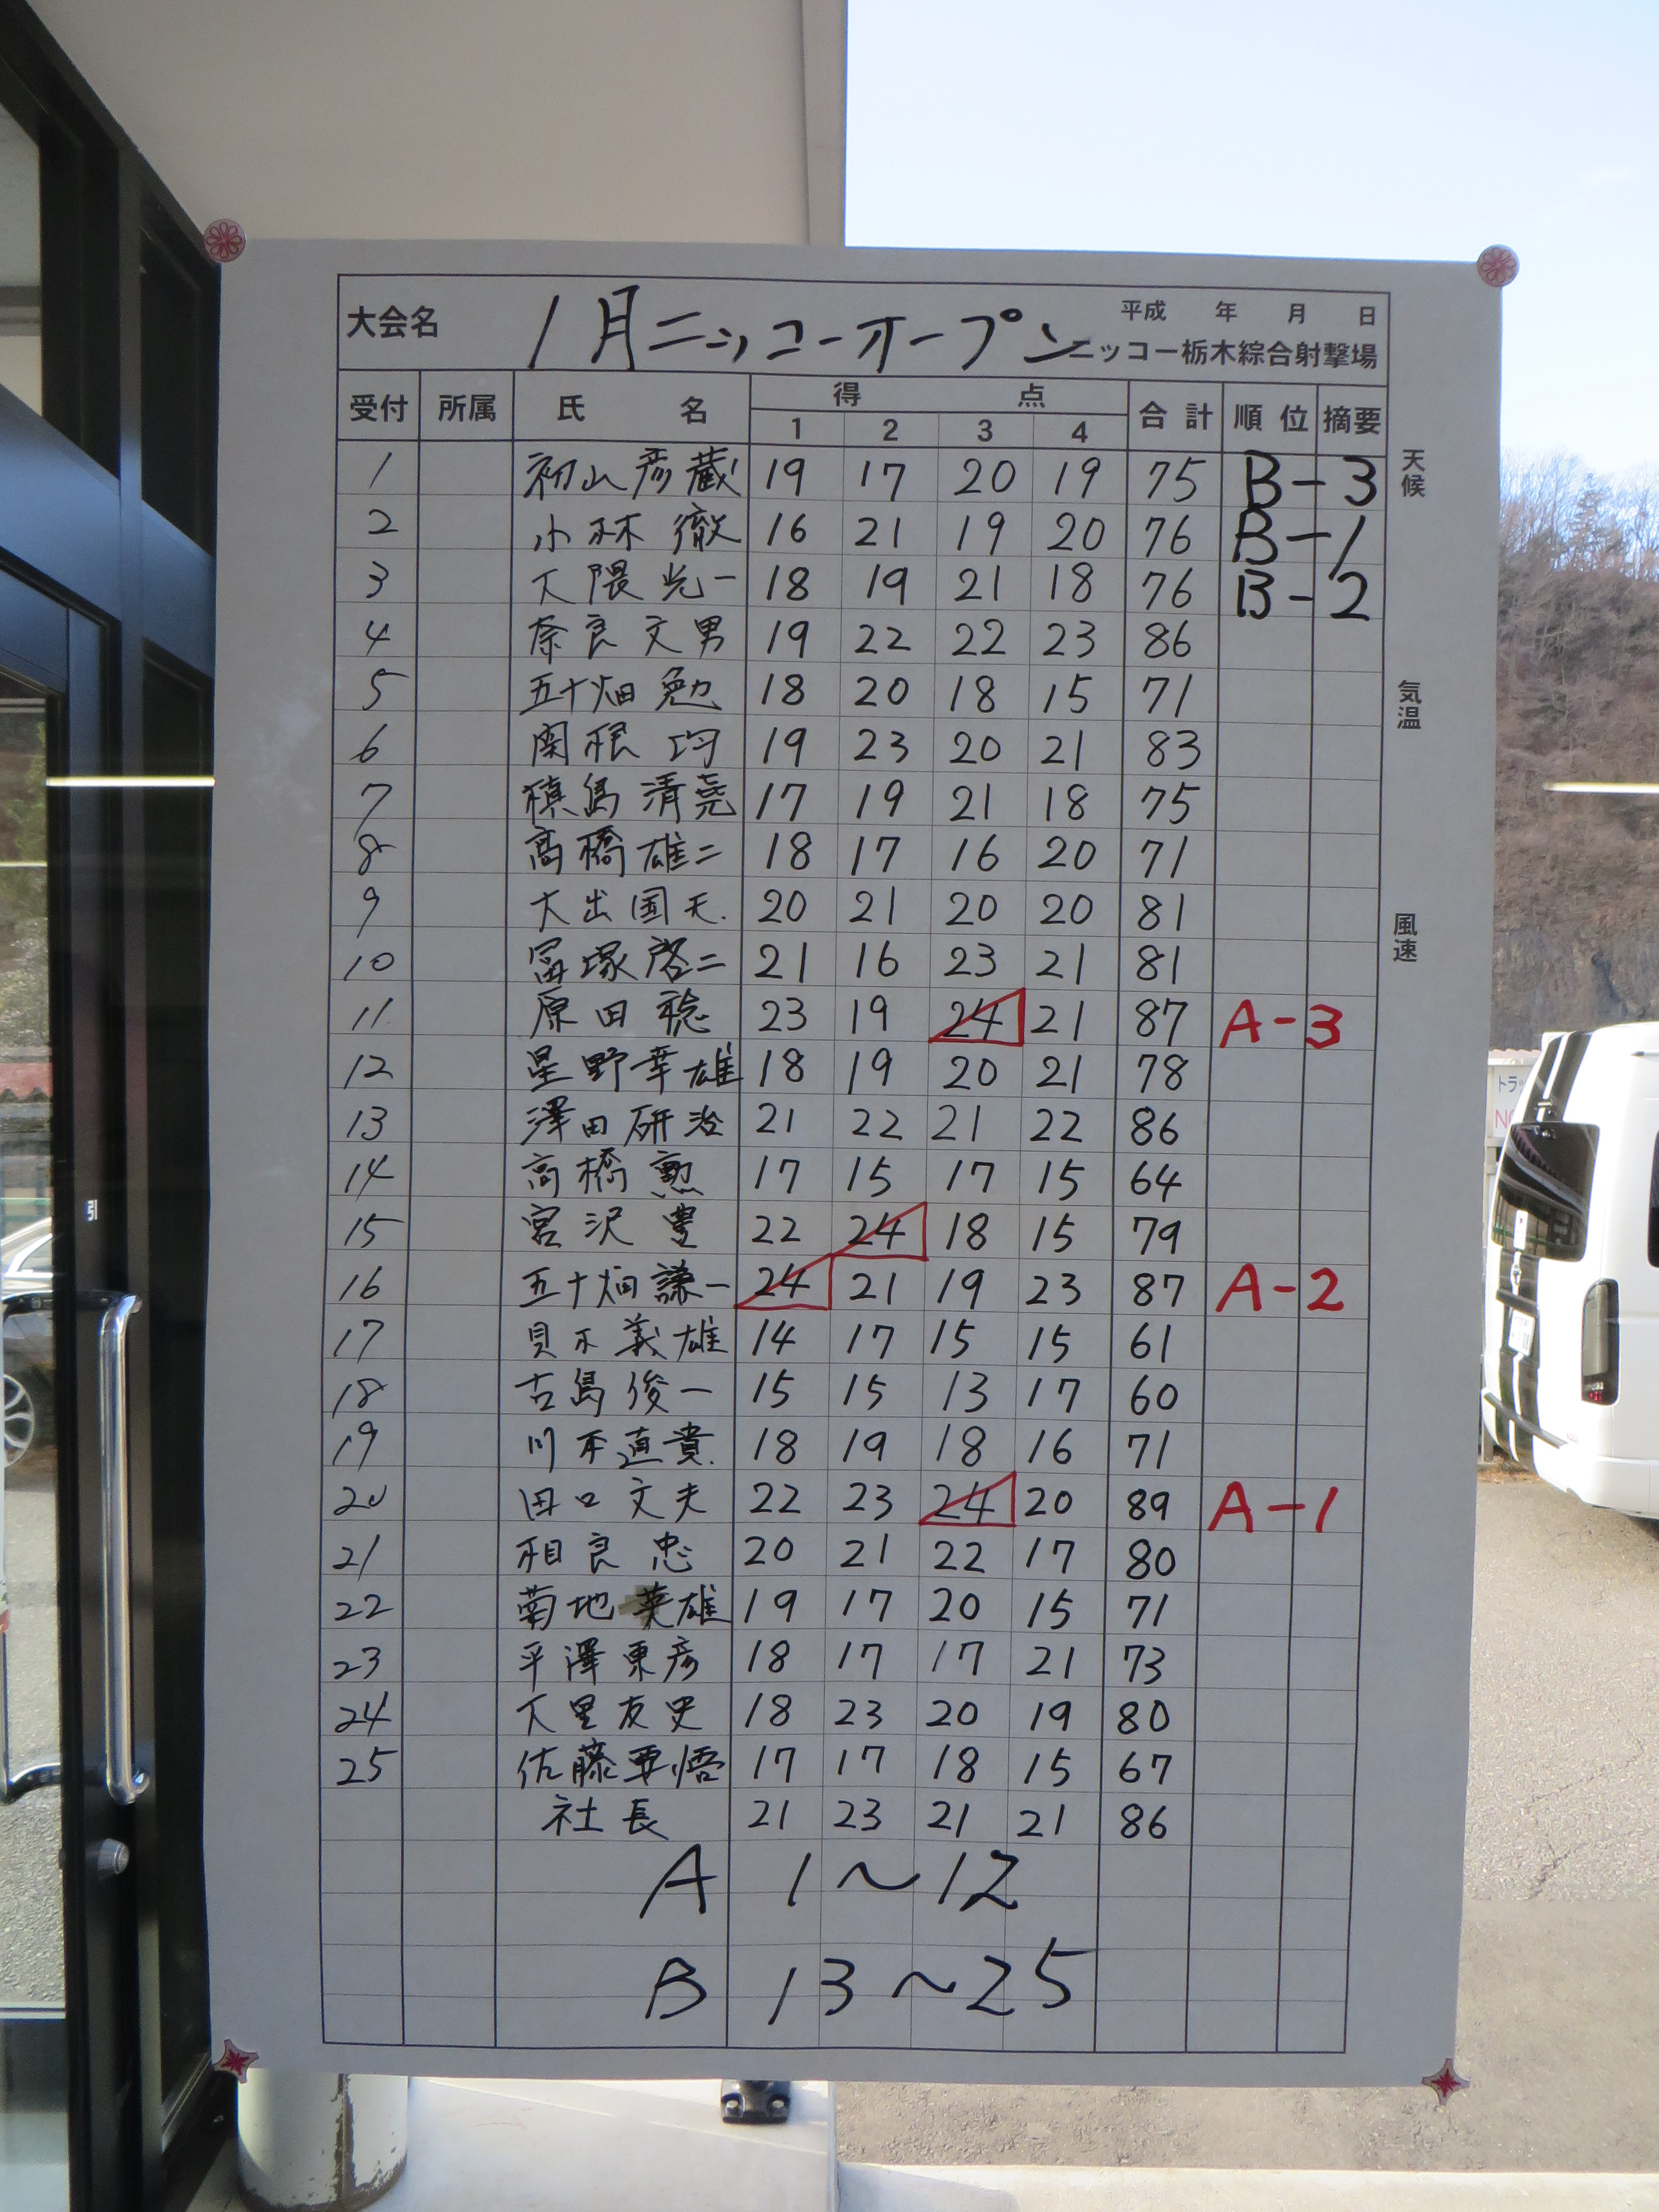 大会名 1月ニッコーオープン 平成 年 月 日
ニッコー栃木綜合射撃場
受付 所属 氏 名 得 点 合計 順位 摘要
1 2 3 4
1 初山彦蔵 19 17 20 19 75 B-3
2 小林 徹 16 21 19 20 76 B-1
3 大隈光一 18 19 21 18 76 B-2
4 奈良文男 19 22 22 23 86
5 五十畑 勉 18 20 18 15 71
6 関根 均 19 23 20 21 83
7 槙島清尭 17 19 21 18 75
8 高橋雄二 18 17 16 20 71
9 大出国夫 20 21 20 20 81
10 冨塚啓二 21 16 23 21 81
11 原田 稔 23 19 24 21 87 A-3
12 星野幸雄 18 19 20 21 78
13 澤田研治 21 22 21 22 86
14 高橋 勲 17 15 17 15 64
15 宮沢 豊 22 24 18 15 79
16 五十畑謙一 24 21 19 23 87 A-2
17 貝木義雄 14 17 15 15 61
18 古島俊一 15 15 13 17 60
19 川本直貴 18 19 18 16 71
20 田口文夫 22 23 24 20 89 A-1
21 相良 忠 20 21 22 17 80
22 菊地英雄 19 17 20 15 71
23 平澤東彦 18 17 17 21 73
24 大里友史 18 23 20 19 80
25 佐藤要悟 17 17 18 15 67
社長 21 23 21 21 86
A 1〜12
B 13〜25
天候
気温
風速
引
トラッ
NO